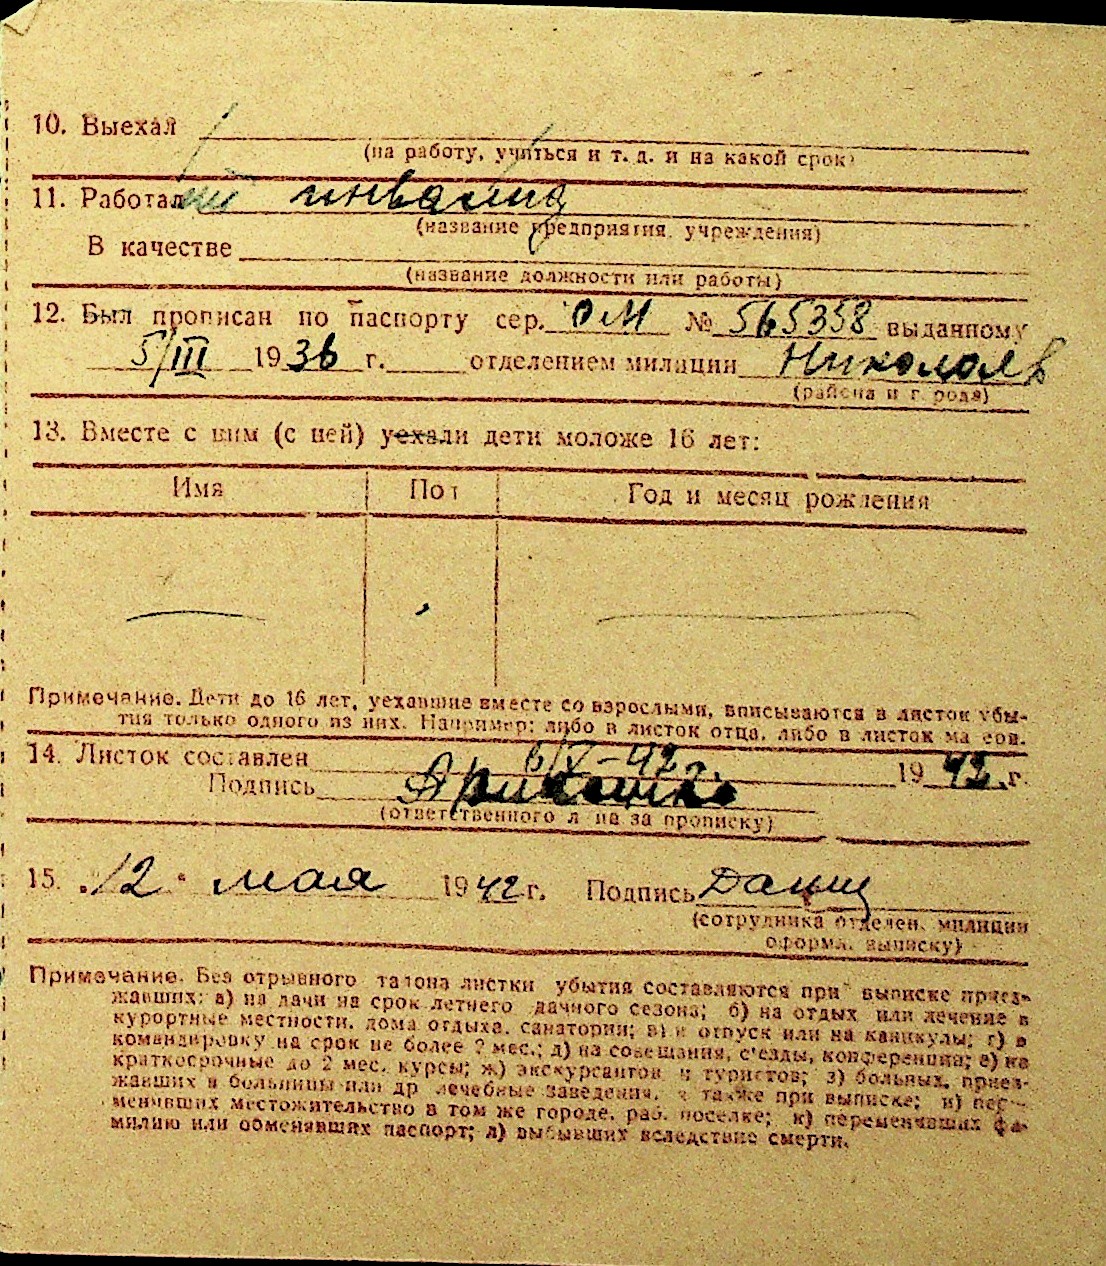 10. Выехал
(на работу, учиться и т. д. и на какой срок)
11. Работал инвалид
(название предприятия, учреждения)
В качестве
(название должности или работы)
12. Был прописан по паспорту сер. ОМ № 565358 выданному
5/III 1936 г. отделением милиции Николаев
(района и города)
13. Вместе с ним (с ней) уехали дети моложе 16 лет:
Имя Пол Год и месяц рождения
Примечание. Дети до 16 лет, уехавшие вместе со взрослыми, вписываются в листок убы-
тия только одного из них. Например: либо в листок отца, либо в листок матери.
14. Листок составлен 6/V-42 г. 1942 г.
Подпись
(ответственного лица за прописку)
15. "12" мая 1942 г. Подпись
(сотрудника отделен. милиции
оформл. выписку)
Примечание. Без отрывного талона листки убытия составляются при выписке приез-
жавших: а) на дачи на срок летнего дачного сезона; б) на отдых или лечение в
курортные местности, дома отдыха, санатории; в) в отпуск или на каникулы; г) в
командировку на срок не более 2 мес.; д) на совещания, с'езды, конференции; е) на
краткосрочные до 2 мес. курсы; ж) экскурсантов и туристов; з) больных, приез-
жавших в больницы или др лечебные заведения, а также при выписке; и) пере-
менивших местожительство в том же городе, раб. поселке; к) переменивших фа-
милию или обменявших паспорт; л) выбывших вследствие смерти.